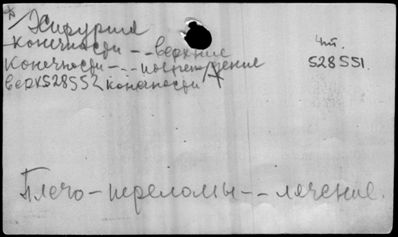 Хирургия
конечности -- верхние
конечности --- повреждение
верх 528552 конечности
чт.
528551.
Плечо - переломы -- лечение.